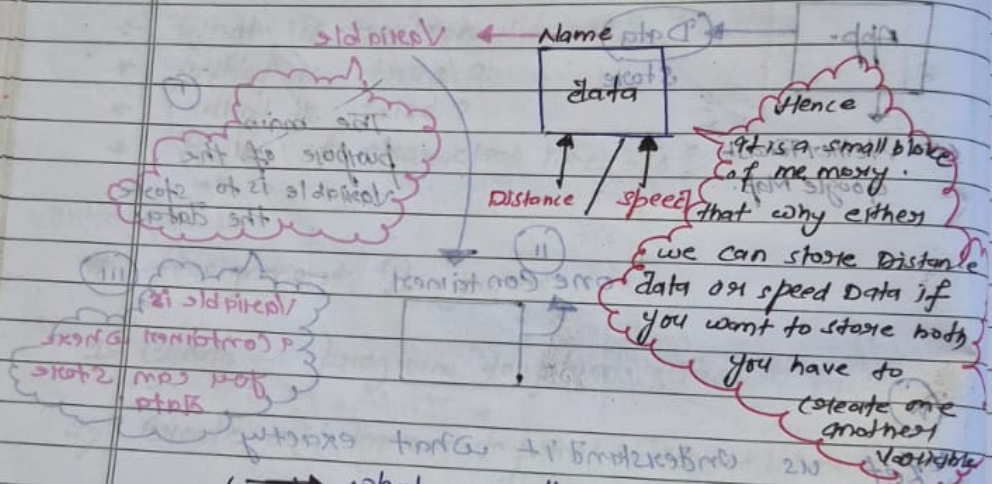 Name
data
Distance / Speed
Hence
It is a small bloke
of me mory.
that why either
we can store Distance
data or speed Data if
you want to store both
you have to
create one
another
Variable